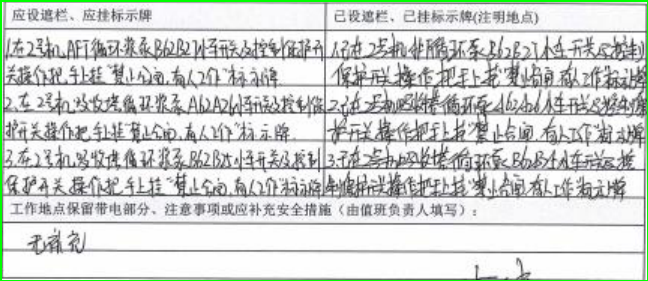 应设遮栏、应挂标示牌
已设遮栏、已挂标示牌(注明地点)
1.在2号机AFT循环浆泵B62B27小车开关及控制保护开
关操作把手上挂"禁止合闸,有人工作"标示牌
2.在2号机吸收塔循环浆泵A62A26小车开关及控制保
护开关操作把手上挂"禁止合闸,有人工作"标示牌
3.在2号机吸收塔循环浆泵B62B 小车开关及控制
保护开关操作把手上挂"禁止合闸,有人工作"标示牌
1.已在2号机 循环泵B62B27小车开关及控制
保护开关操作把手上挂"禁止合闸,有人工作"标示牌
2.已在2号机吸收塔循环泵 小车开关及控制保
护开关操作把手上挂"禁止合闸,有人工作"标示牌
3.已在2号机吸收塔循环泵B62B 小车开关及控
制保护开关操作把手上挂"禁止合闸,有人工作"标示牌
工作地点保留带电部分、注意事项或应补充安全措施(由值班负责人填写):
无补充